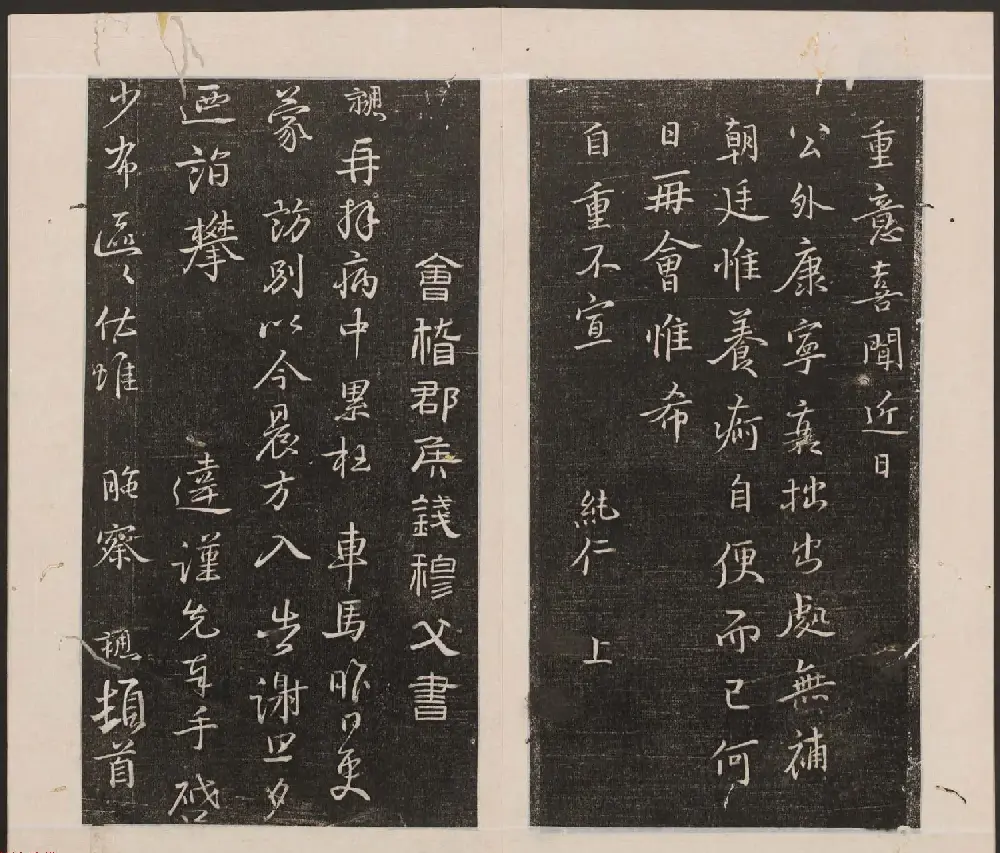 重意喜聞近日
公外康寧襄拙出處無補
朝廷惟養痾自便而已何
日再會惟希
自重不宣 純仁 上
會稽郡侯錢穆父書
勰再拜病中累枉 車馬昨日更
蒙 訪別以今晨方入 告謝旦夕
迺詣攀 違謹先奉手
少布區區伏惟 晻察 勰頓首